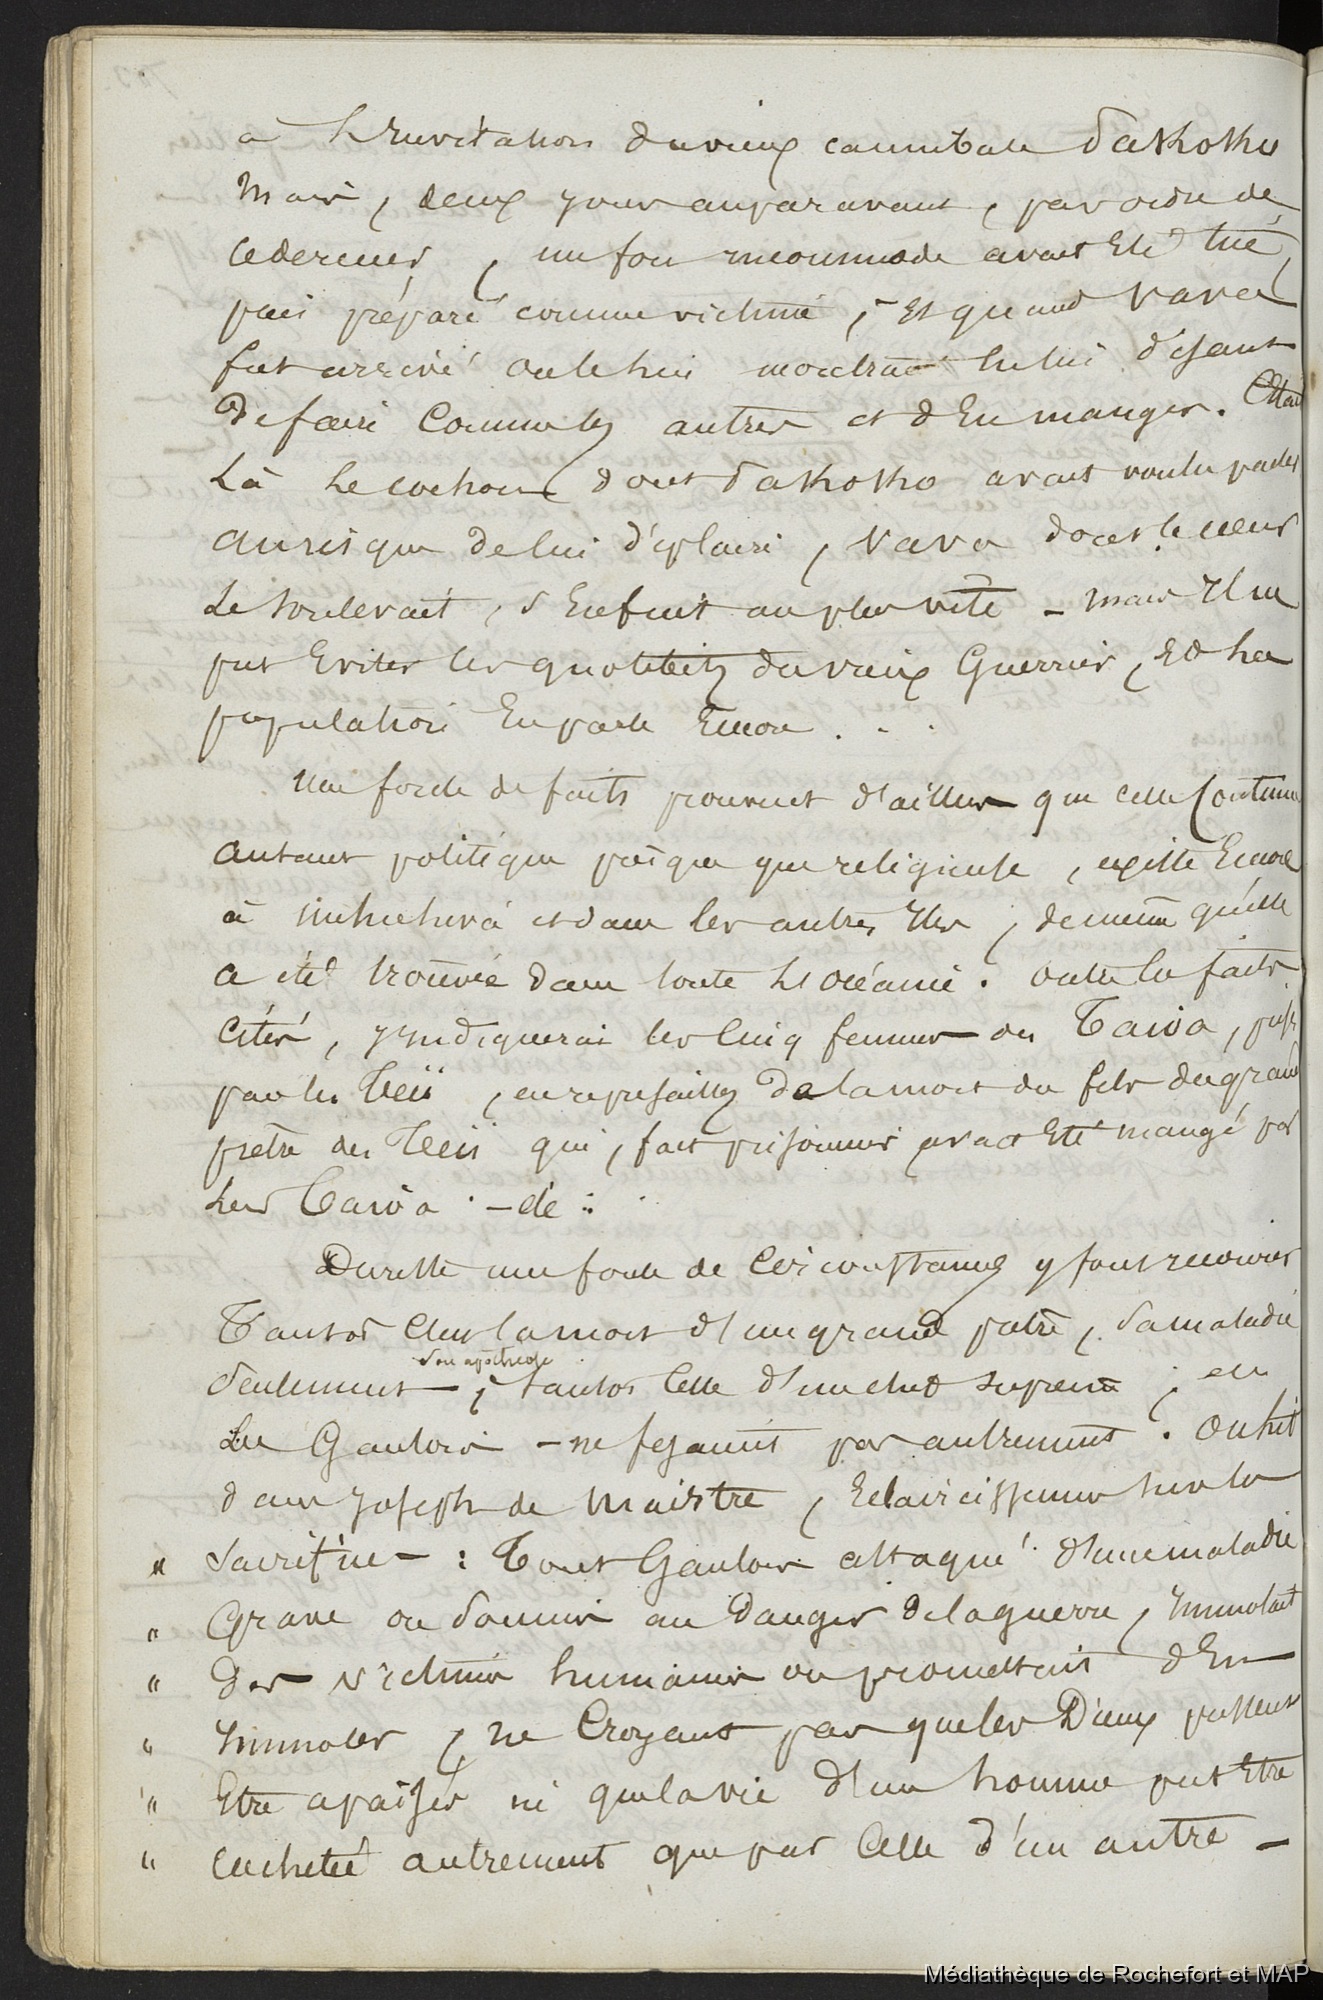 à l'invitation du vieux cannibale Pakoko
Mais, deux jours auparavant, par ordre de
ce dernier, un fou incommode avait été tué,
puis préparé comme victime, et quand Vava
fut arrivé on le lui montra en lui disant
de faire comme les autres et d'en manger. C'était
là le cochon dont Pakoko avait voulu parler
au risque de lui déplaire, Vava dont le cœur
se soulevait, s'enfuit au plus vite - mais il ne
put éviter les quolibets du vieux guerrier, et la
population en parle encore . . .
Une foule de faits prouvent d'ailleurs que cette coutume
autant politique presque que religieuse, existe encore
à Nukuhiva et dans les autres îles, de même qu'elle
a été trouvée dans toute l'Océanie. outre les faits
cités, j'indiquerai les cinq femmes des Taioa, prises
par les Teii, en représailles de la mort du fils du grand
prêtre des Teii qui, fait prisonnier avait été mangé par
les Taioa - de :
Du reste une foule de circonstances y font recourir
Tantôt c'est la mort d'un grand prêtre, sa maladie
son apothéose
seulement, tantôt celle d'un chef suprême, etc
Les Gaulois - ne fesaient pas autrement. On lit
dans Joseph de Maistre, Eclaircissement sur les
" Sacrifices - : Tout Gaulois attaqué d'une maladie
" Grave ou soumis au danger de la guerre, immolait
" des victimes humaines ou promettait d'en
" immoler, ne croyant pas que les Dieux pussent
" être apaisés ni que la vie d'un homme put être
" rachetée autrement que par celle d'un autre -
Médiathèque de Rochefort et MAP